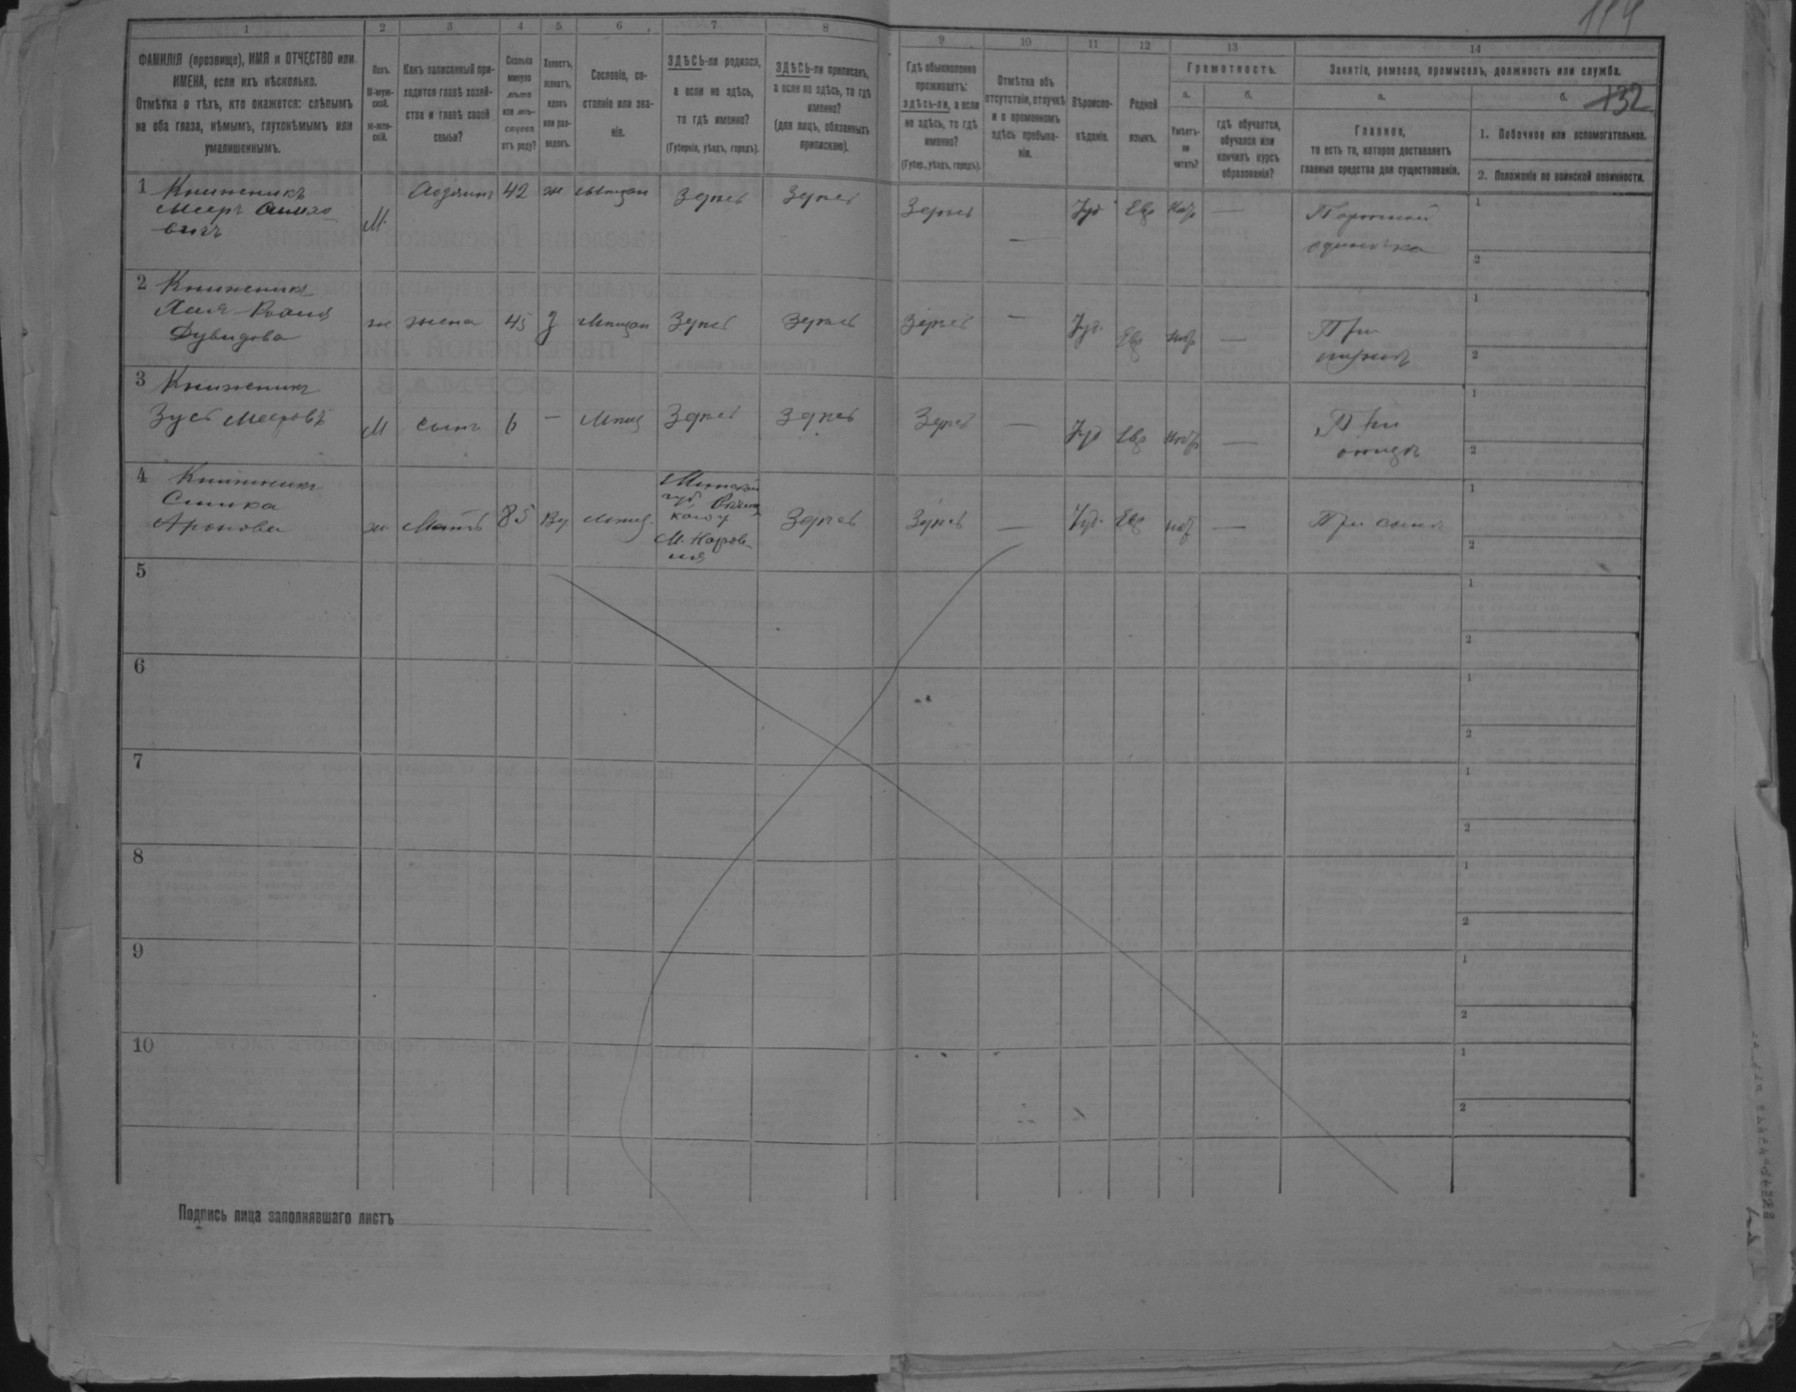 132
1
2
3
4
5
6
7
8
9
10
11
12
13
14
ФАМИЛІЯ (прозвище), ИМЯ и ОТЧЕСТВО или
ИМЕНА, если ихъ нѣсколько.
Отмѣтка о тѣхъ, кто окажется: слѣпымъ
на оба глаза, нѣмымъ, глухонѣмымъ или
умалишеннымъ.
Полъ.
М-муж-
ской.
ж-жен-
скій.
Какъ записанный при-
ходится главѣ хозяй-
ства и главѣ своей
семьи?
Сколько
минуло
лѣтъ
или мѣ-
сяцевъ
отъ роду?
Холостъ,
женатъ,
вдовъ
или раз-
веденъ.
Сословіе, со-
стояніе или зва-
ніе.
ЗДѢСЬ-ли родился,
а если не здѣсь,
то гдѣ именно?
(Губернія, уѣздъ, городъ).
ЗДѢСЬ-ли приписанъ,
а если не здѣсь, то гдѣ
именно?
(для лицъ, обязанныхъ
припискою).
Гдѣ обыкновенно
проживаетъ:
здѣсь-ли, а если
не здѣсь, то гдѣ
именно?
(Губер., уѣздъ, городъ).
Отмѣтка объ
отсутствіи, отлучкѣ
и о временномъ
здѣсь пребыва-
ніи.
Вѣроиспо-
вѣданіе.
Родной
языкъ.
Грамотность.
а.
Умѣетъ-
ли
читать?
б.
гдѣ обучается,
обучался или
кончилъ курсъ
образованія?
Занятіе, ремесло, промыселъ, должность или служба.
а.
Главное,
то есть то, которое доставляетъ
главныя средства для существованія.
б.
1. Побочное или вспомогательное.
2. Положеніе по воинской повинности.
1 Книжникъ
Мееръ
М. 42 ж Здѣсь Здѣсь Здѣсь — Іуд Евр —
одиночка
1
2
2 Книжникъ
Хая
Дувидова
ж жена 45 Здѣсь Здѣсь Здѣсь — Іуд. Евр —
При
мужѣ
1
2
3 Книжникъ
Зусь Мееровъ
М сынъ 6 — Мѣщ Здѣсь Здѣсь Здѣсь — Іуд Евр —
При
отцѣ
1
2
4 Книжникъ
Симка
Аронова
ж Мать 85 Вд Мѣщ.
Минской
губ.
М. Наров-
ля
Здѣсь Здѣсь — Іуд. Евр — При сынѣ
1
2
5
1
2
6
1
2
7
1
2
8
1
2
9
1
2
10
1
2
Подпись лица заполнявшаго листъ